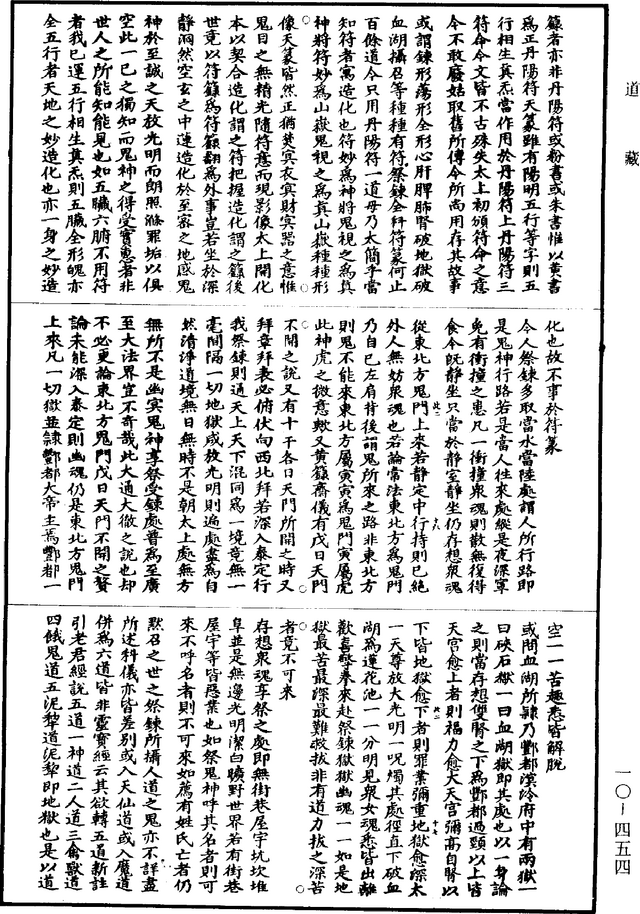 籙者亦非丹陽符或粉書或朱書惟以黄書
為正丹陽符天篆雖有陽明五行等字則五
行相生真炁當作用於丹陽符上丹陽符三
符命今文皆不古殊失太上初頒符命之意
今不敢廢姑取舊所傳今所尚用存其故事
或謂鍊形蕩形全形心肝脾肺腎破地獄破
血湖攝召等種種有符祭鍊全科符篆何止
百餘道今只用丹陽符一道毋乃太簡乎當
知符者寓造化也符妙為神將鬼視之為真
神將符妙為山嶽鬼視之為真山嶽種種形
像天篆皆然正猶焚冥衣冥財冥器之意惟
鬼目之無精光隨符意而現影像太上開化
本以契合造化謂之符把握造化謂之籙後
世竟以符籙為符籙翻為外事豈若坐於深
静兩然空玄之中運造化於至密之地感鬼
神於至誠之天放光明而朗照滌罪垢以俱
空此一已之獨知而鬼神之得受實惠者非
世人之所能知能見也如五臟六腑不用符
者我已運五行相生真炁則五臟全形魄亦
全五行者天地之妙造化也亦一身之妙造
化也故不事於符篆
今人祭鍊多取當水當陸處謂人所行路即
是鬼神行路若是當人徃來處縱是夜深軍
免有衝撞之患凡一衝撞衆魂則散無復得
食今既静坐只當於静室静坐仍存想衆魂
從東北方鬼門上來若静定中行持則已絶
外人無妨衆魂也若論常法東北方為鬼門
乃自已左肩背後謂鬼所來之路非東北方
則鬼不能來東北方屬寅寅為鬼門寅屬虎
此神虎之微意歟又黄籙齋儀有戊日天門
不開之説又有十干各日天門所開之時又
拜章拜表必俯伏向西北拜若深入泰定行
我祭鍊則通天上天下混同為一境竟無一
毫間隔一切地獄咸放光明則遍處盡為自
然清淨道境無日無時不是朝太上處無方
無所不是幽冥鬼神享祭受鍊處普為至廣
至大法界豈不奇哉此大通大徹之説也却
不必更論東北方鬼門戊日天門不開之贅
論未能深入泰定則幽魂仍是東北方鬼門
上來凡一切獄並隸酆都大帝主焉酆都一
空一一苦趣悉皆解脱
或問血湖所隷乃酆都溟泠府中有兩獄一
曰硤石獄一曰血湖獄即其處也以一身論
之則當存想雙腎之下為酆都過頸以上皆
天宫愈上者則福力愈大天宫彌高自腎以
下皆地獄愈下者則罪業彌重地獄愈深太
一天尊放大光明一呪燭其處徑直下破血
湖為蓮花池一一分明見衆女魂悉皆出離
歡喜擎拳來赴祭鍊獄獄幽魂一一如是地
獄最苦最深最難救拔非有道力拔之深苦
者竟不可來
存想衆魂享祭之處即無街巷屋宇坑坎堆
阜並是無邊光明潔白曠野世界若有街巷
屋宇等皆惡業也如祭鬼神呼其名者則可
來不呼名者則不可來如薦有姓氏亡者仍
黙召之世之祭鍊所攝人道之鬼亦不詳盡
所述科儀亦皆差别或入天仙道或入魔道
併為六道皆非靈寶經云其欲轉五道新註
引老君經説五道一神道二人道三禽獸道
四餓鬼道五泥犁道泥犁即地獄也是以道
道藏
一〇－四五四